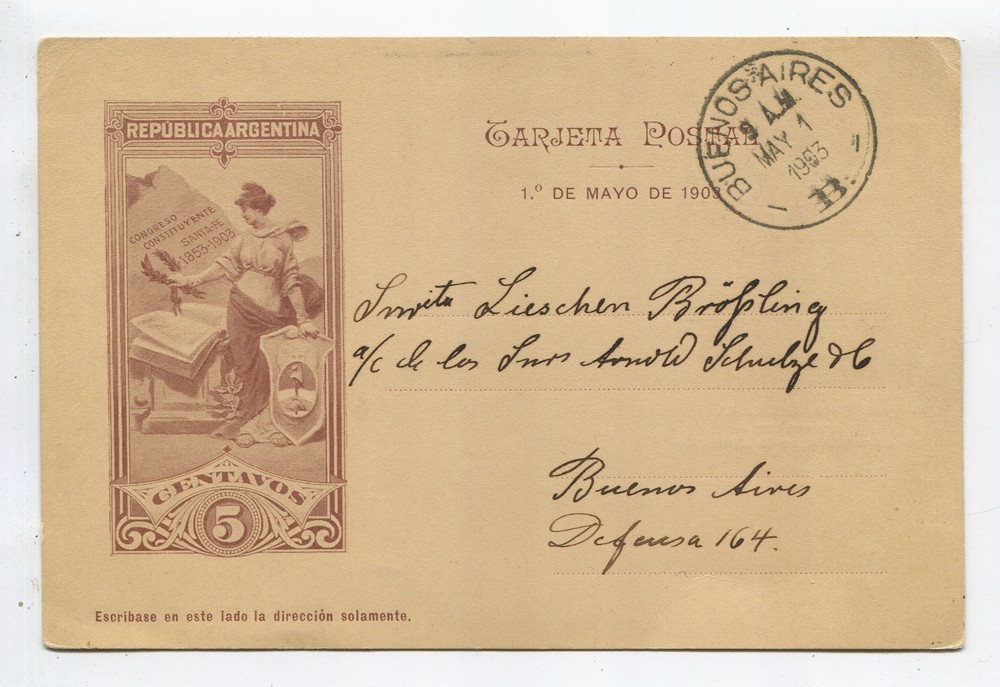 REPÚBLICA ARGENTINA
CONGRESO
CONSTITUYENTE
SANTA-FE
1853-1903
CENTAVOS
5
TARJETA POSTAL
1.º DE MAYO DE 1903
BUENOS AIRES
9 A.M.
MAY 1
1903
Lieschen Brößling
a/c de los Snrs Arnold Schultze & C
Buenos Aires
Defensa 164.
Escribase en este lado la dirección solamente.